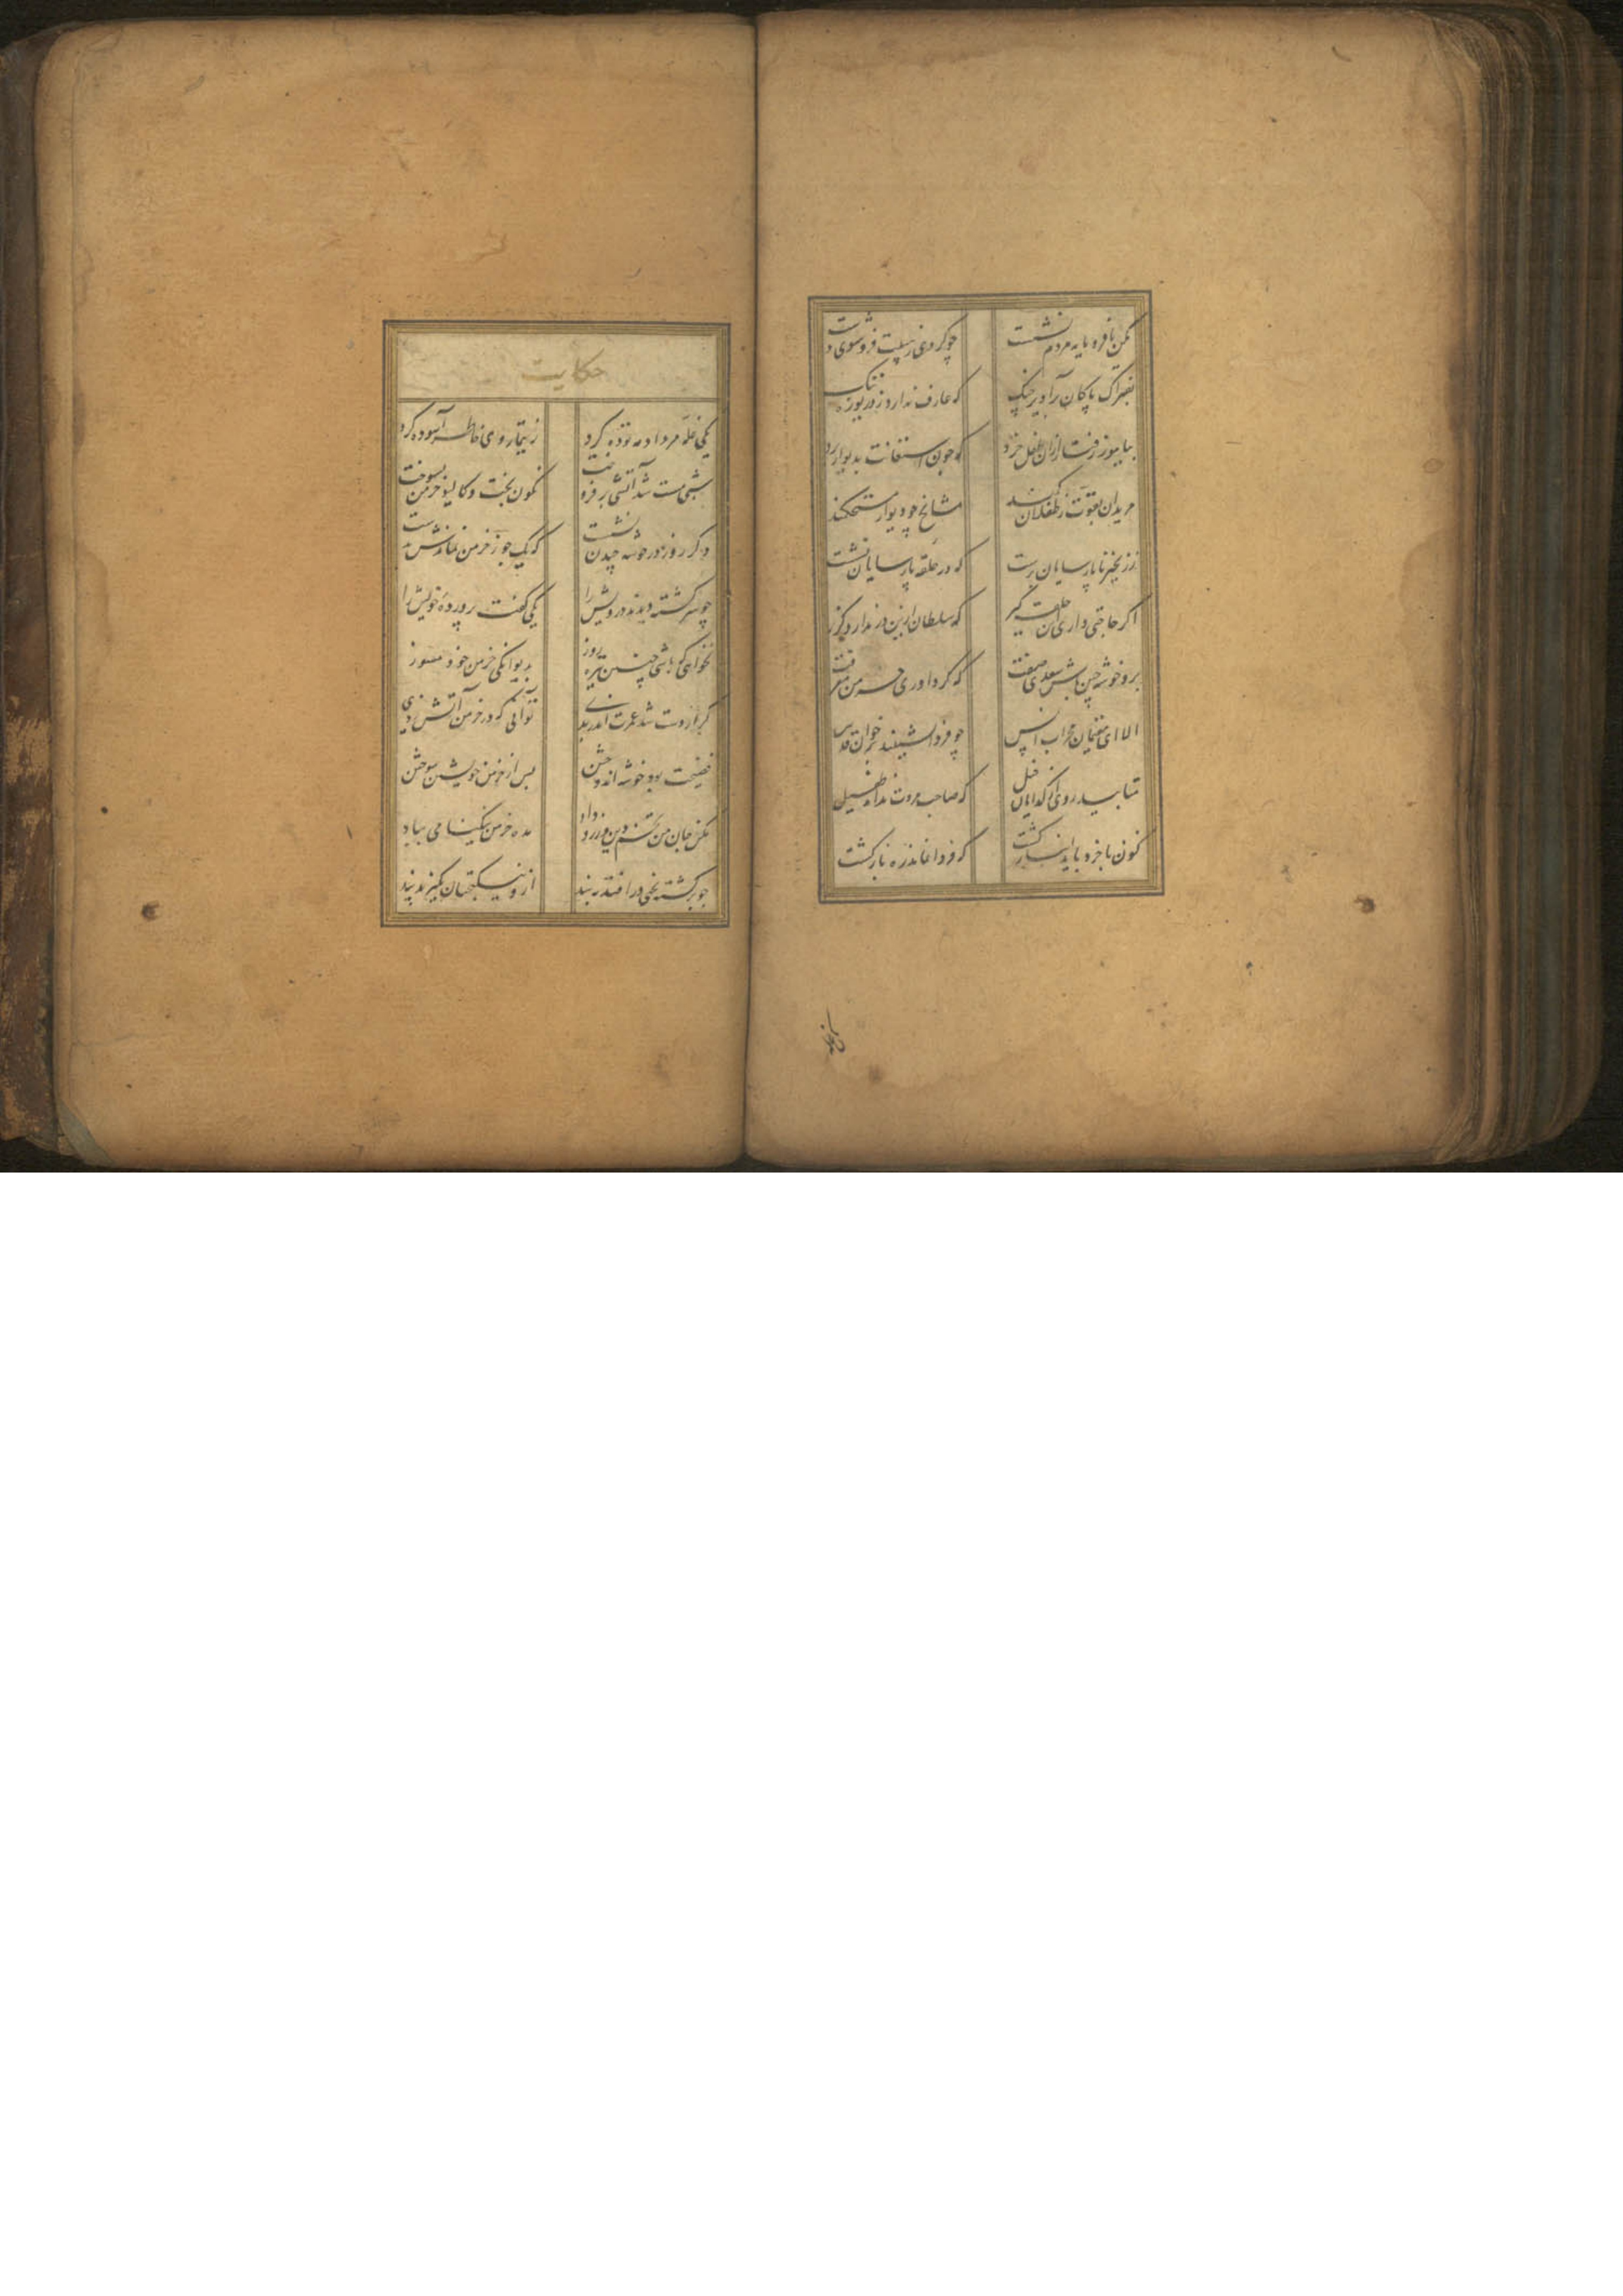 مکن با فرومایه مردم نشست
چو کردی ز هیبت فروشوی دست
بفتراک پاکان درآویز چنگ
که عارف ندارد ز دریوزه ننگ
بیاموز رفتار ازان طفل خرد
که چون استعانت بدیوار برد
مریدان بقوت ز طفلان کمند
مشایخ چو دیوار مستحکمند
ز زنجیر ناپارسایان برست
که در حلقه پارسایان نشست
اگر حاجتی داری این حلقه گیر
که سلطان ازین در ندارد گزیر
برو خوشه چین باش سعدی صفت
که گرد آوری خرمن معرفت
الا ای مقیمان محراب انس
چو فردا نشینید بر خوان قدس
متابید روی از گدایان خیل
که صاحب مروت نداند طفیل
کنون با خرد باید انباز گشت
که فردا نماند ره بازگشت
حکایت
یکی غله مرداد مه توده کرد
ز تیمار وی خاطر آسوده کرد
شبی مست شد آتشی بر فروخت
نگون بخت و کالیو خرمن بسوخت
دگر روز در خوشه چیدن نشست
که یک جو ز خرمن نماندش بدست
چو سرگشته دیدند درویش را
یکی گفت پرورده خویش را
نخواهی که باشی چنین تیره روز
بدیوانگی خرمن خود مسوز
گر از دست شد عمرت اندر بدی
تو آنی که در خرمن آتش زدی
فضیحت بود خوشه اندوختن
پس از خرمن خویشتن سوختن
مکن جان من تخم دین ورز و داد
مده خرمن نیکنامی بباد
چو برگشته بختی در افتد ببند
ازو نیکبختان بگیرند پند